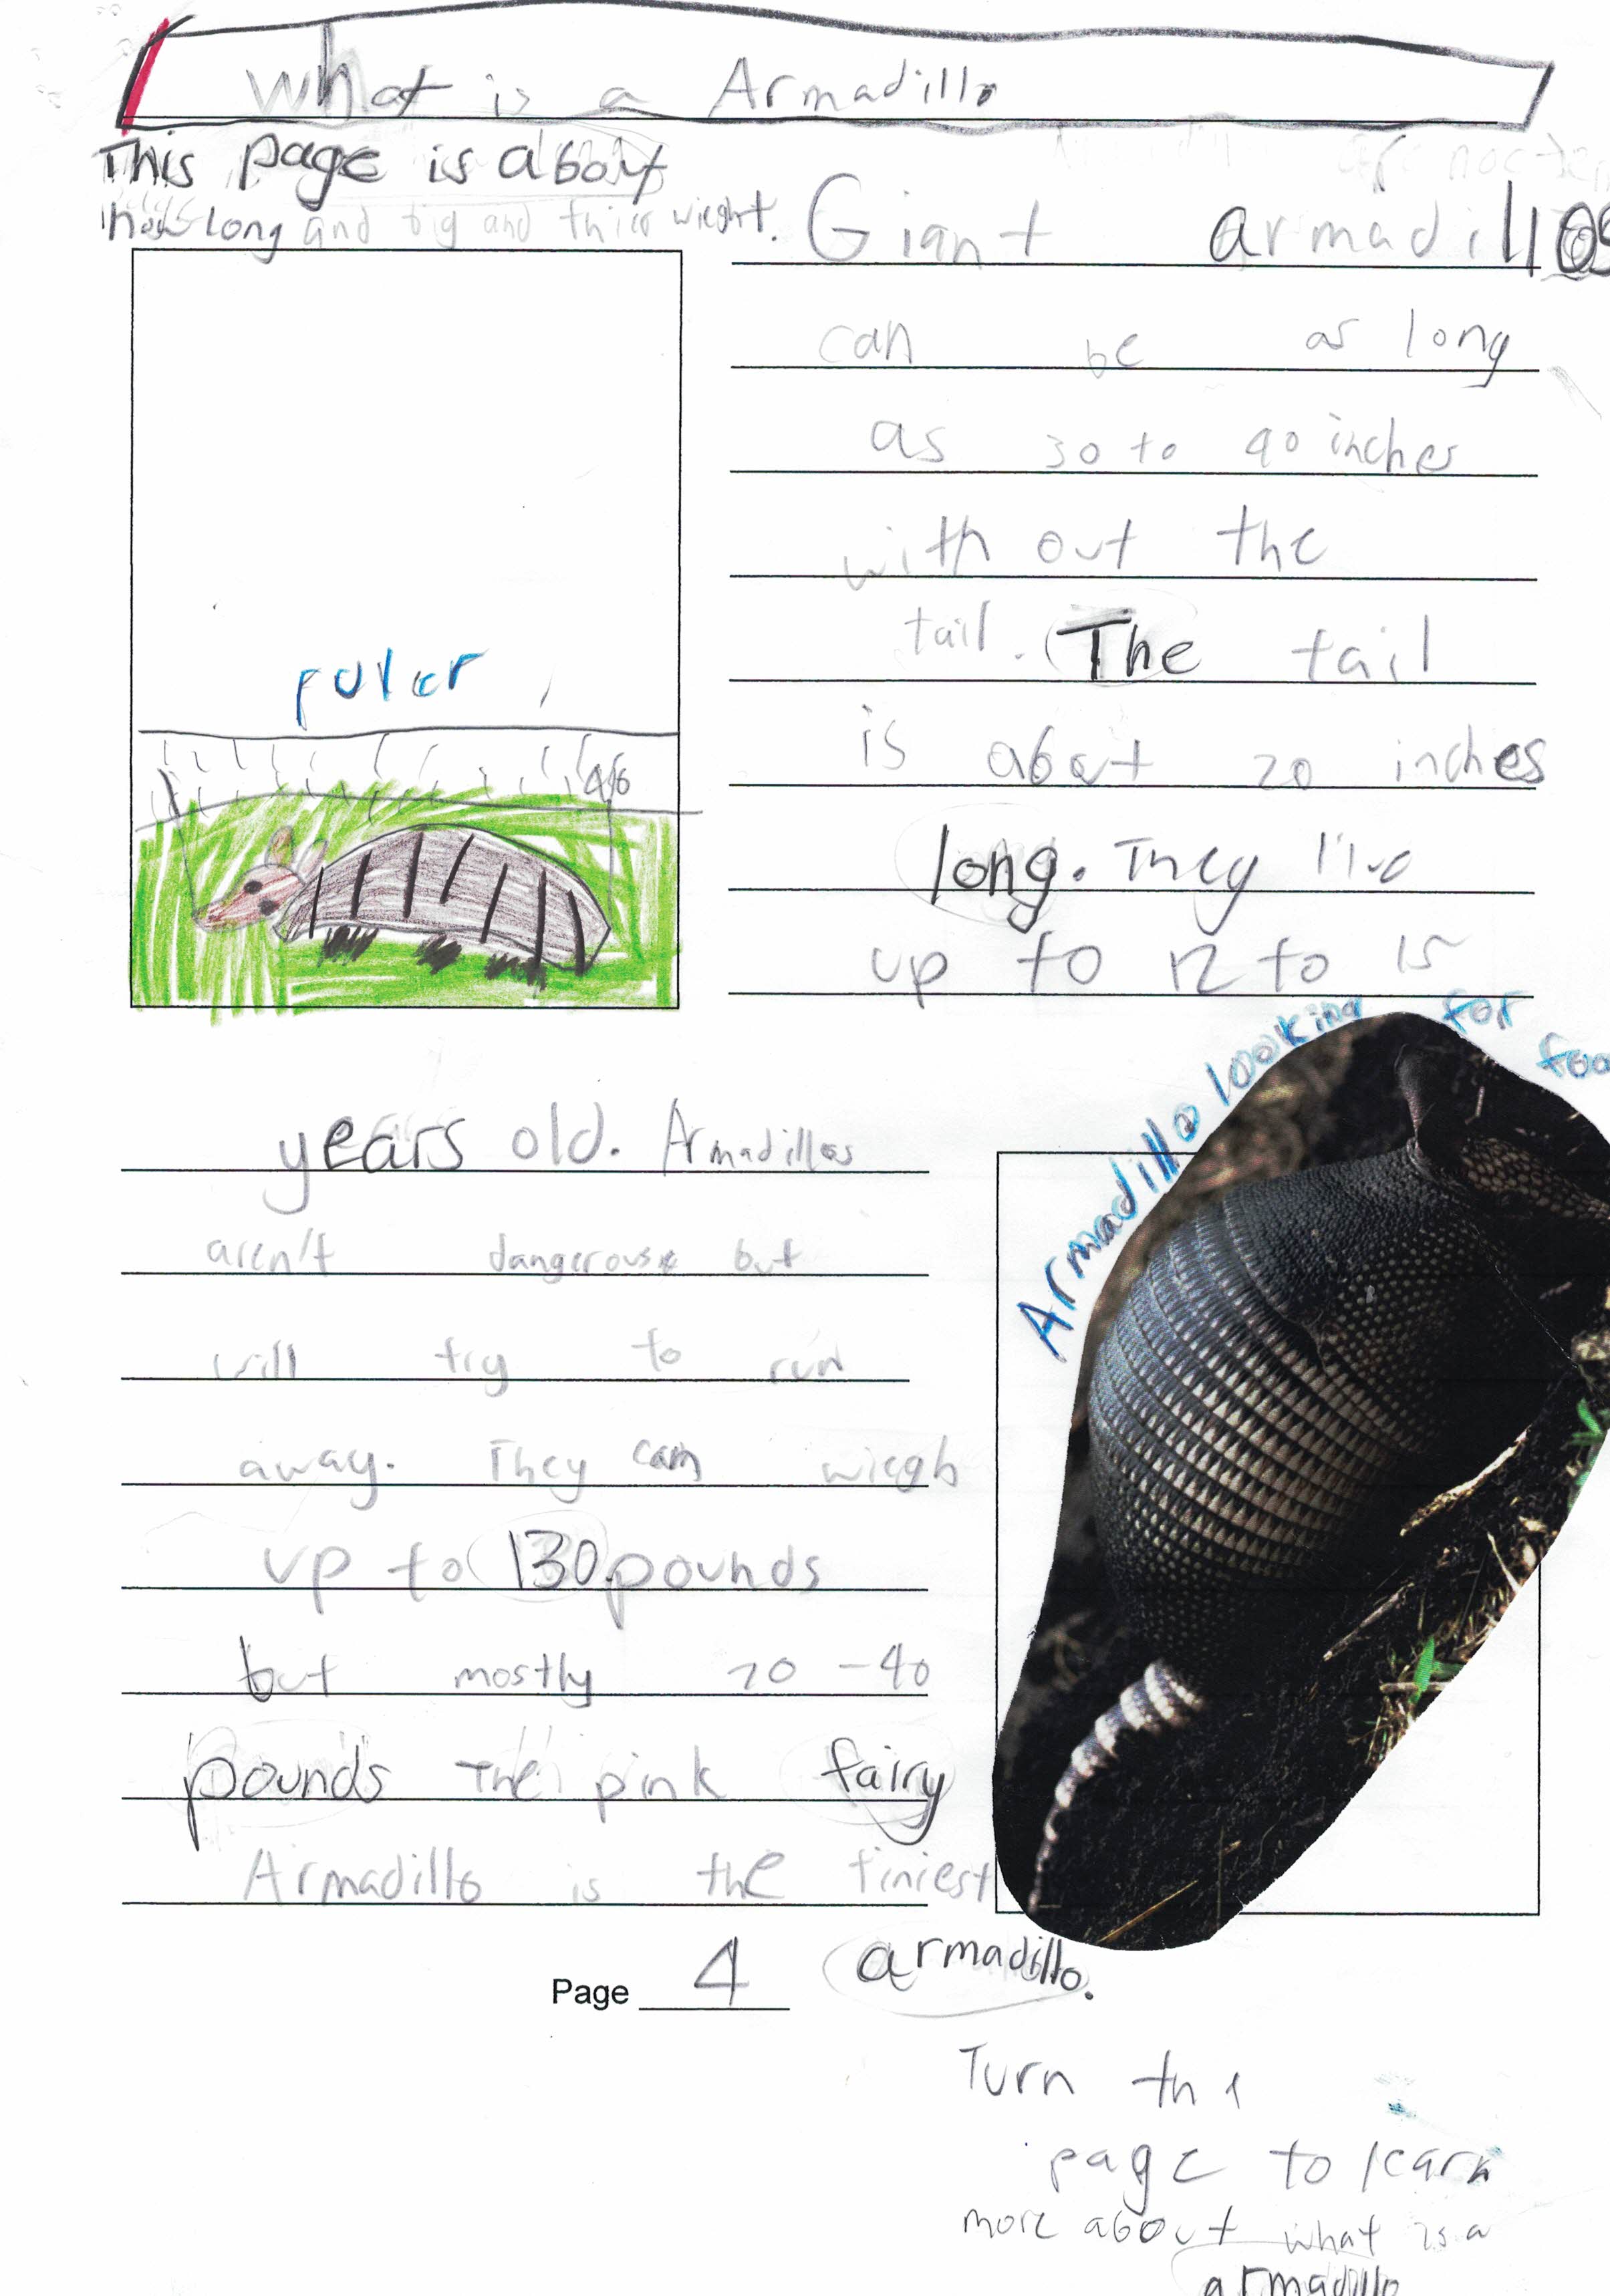 What is a Armadillo
This page is about
how long and big and thier wieght.
Giant armadillos
can be as long
as 30 to 40 inches
with out the
tail. The tail
is about 20 inches
long. They live
up to 12 to 15
ruler
46
Armadillo looking for foo
years old. Armadillos
aren't dangerous but
will try to run
away. They can wiegh
up to 130 pounds
but mostly 20-40
pounds The pink fairy
Armadillo is the tiniest
armadillo.
Page 4
Turn the
page to learn
more about what is a
armadillo